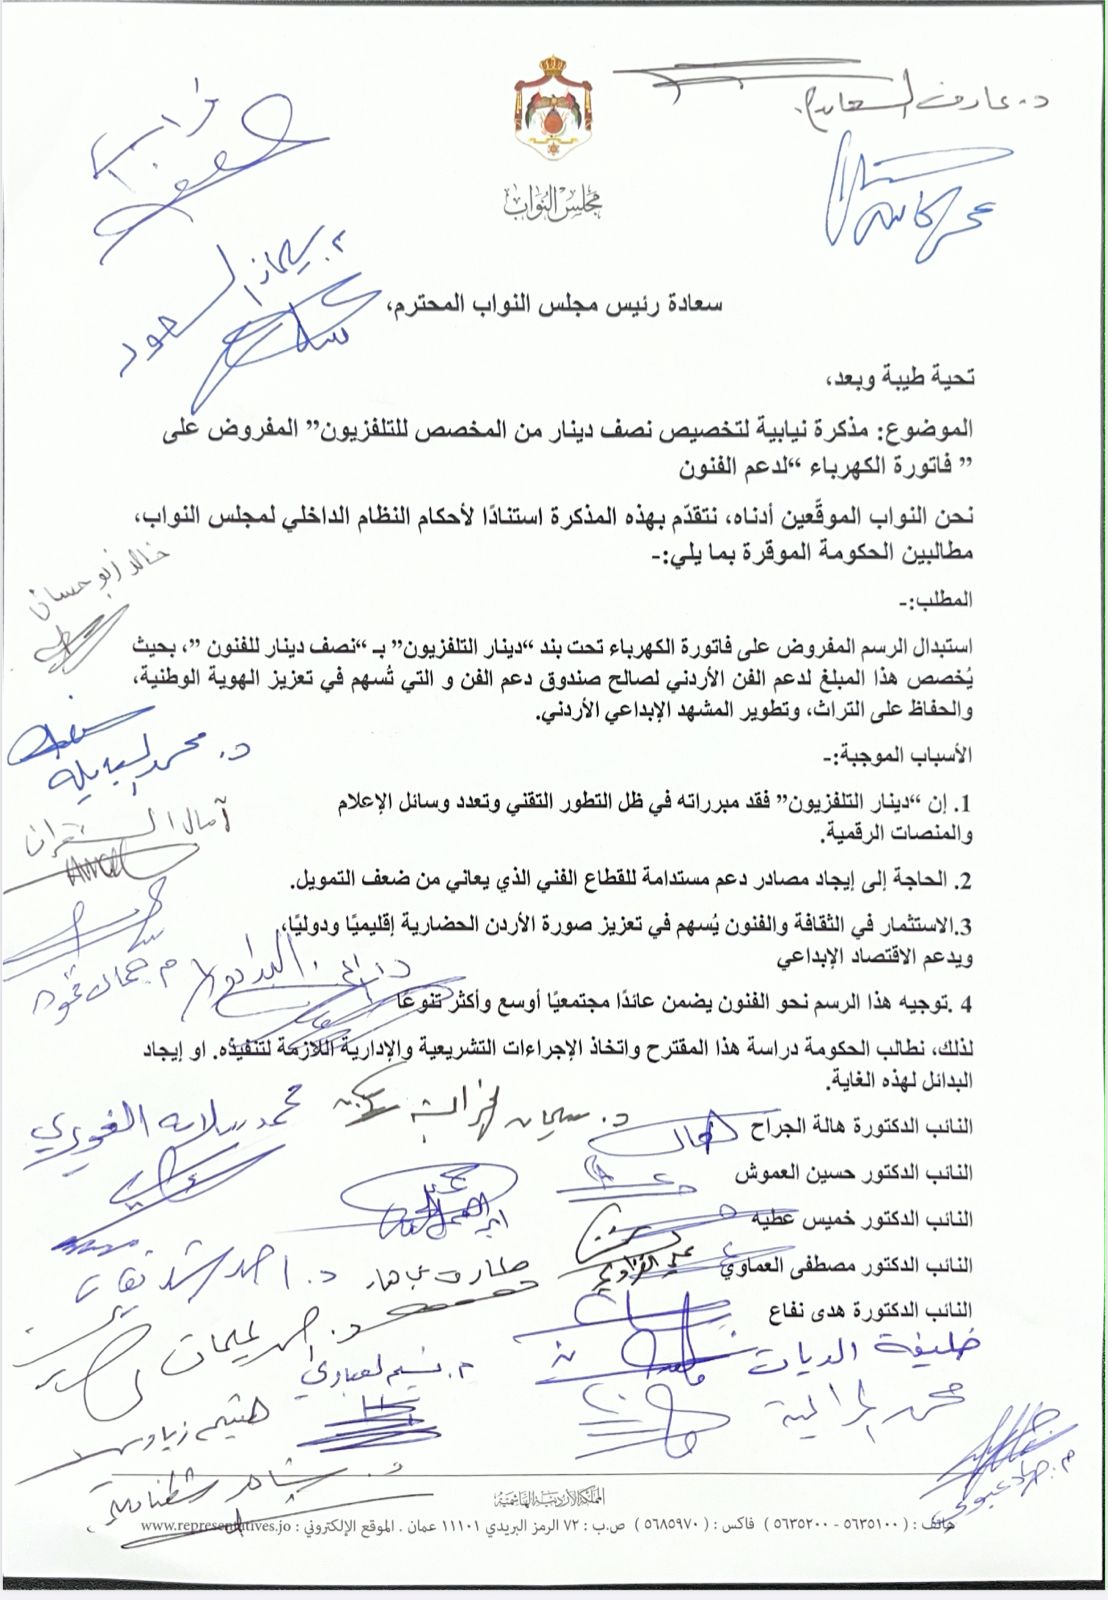 د. عارف السعايدة
مجلس النواب
سعادة رئيس مجلس النواب المحترم،
تحية طيبة وبعد،
الموضوع: مذكرة نيابية لتخصيص نصف دينار من المخصص للتلفزيون” المفروض على
” فاتورة الكهرباء “لدعم الفنون
نحن النواب الموقّعين أدناه، نتقدّم بهذه المذكرة استنادًا لأحكام النظام الداخلي لمجلس النواب،
مطالبين الحكومة الموقرة بما يلي:-
خالد أبو حسان
المطلب:-
استبدال الرسم المفروض على فاتورة الكهرباء تحت بند “دينار التلفزيون” بـ “نصف دينار للفنون ”، بحيث
يُخصص هذا المبلغ لدعم الفن الأردني لصالح صندوق دعم الفن و التي تُسهم في تعزيز الهوية الوطنية،
والحفاظ على التراث، وتطوير المشهد الإبداعي الأردني.
د. محمد السبايلة
الأسباب الموجبة:-
1. إن “دينار التلفزيون” فقد مبرراته في ظل التطور التقني وتعدد وسائل الإعلام
والمنصات الرقمية.
2. الحاجة إلى إيجاد مصادر دعم مستدامة للقطاع الفني الذي يعاني من ضعف التمويل.
3.الاستثمار في الثقافة والفنون يُسهم في تعزيز صورة الأردن الحضارية إقليميًا ودوليًا،
ويدعم الاقتصاد الإبداعي
4 .توجيه هذا الرسم نحو الفنون يضمن عائدًا مجتمعيًا أوسع وأكثر تنوعًا
لذلك، نطالب الحكومة دراسة هذا المقترح واتخاذ الإجراءات التشريعية والإدارية اللازمة لتنفيذه. او إيجاد
البدائل لهذه الغاية.
محمد سلامه الغويري
النائب الدكتورة هالة الجراح
النائب الدكتور حسين العموش
النائب الدكتور خميس عطيه
النائب الدكتور مصطفى العماوي
النائب الدكتورة هدى نفاع
خليفة الديات
م. نسيم العبادي
محمد المراعية
هيثم زيادين
المملكة الأردنية الهاشمية
هاتف : ( ٥٦٣٥١٠٠ - ٥٦٣٥٢٠٠ ) فاكس : ( ٥٦٨٥٩٧٠ ) ص.ب : ٧٢ الرمز البريدي ١١١٠١ عمان . الموقع الإلكتروني : www.representatives.jo